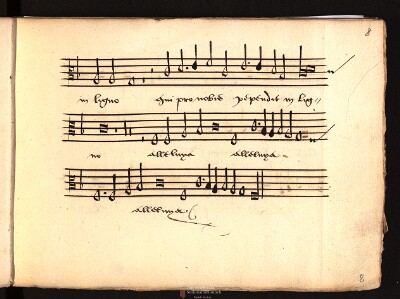 8
in ligno qui pro nobis pependit in lig-
no alleluya alleluya.
alleluya
8